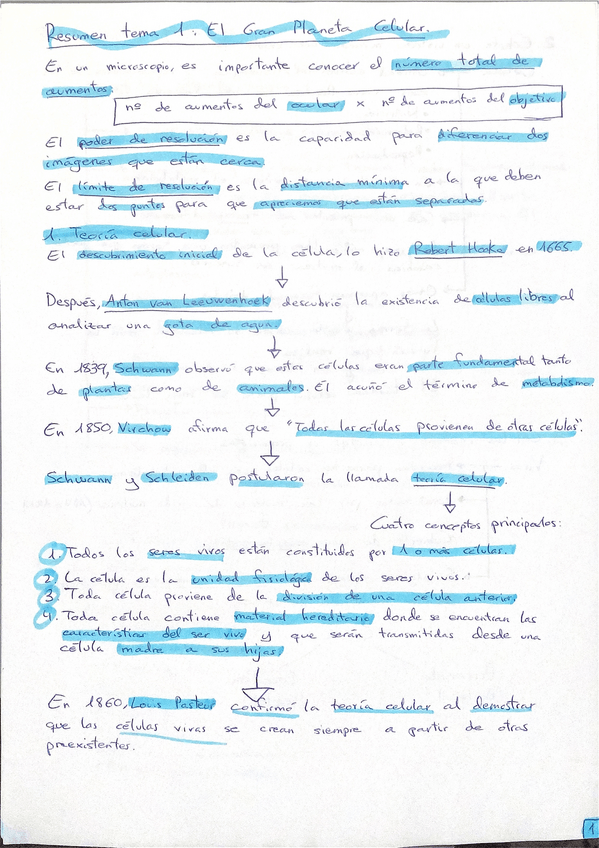 Resumen tema 1: El Gran Planeta Celular.
En un microscopio, es importante conocer el número total de
aumentos:
nº de aumentos del ocular x nº de aumentos del objetivo
El poder de resolución es la capacidad para diferenciar dos
imágenes que están cerca.
El límite de resolución es la distancia mínima a la que deben
estar dos puntos para que apreciemos que están separados.
1. Teoría celular.
El descubrimiento inicial de la célula, lo hizo Robert Hooke en 1665.
Después, Anton van Leeuwenhoek descubrió la existencia de células libres al
analizar una gota de agua.
En 1839, Schwann observó que estas células eran parte fundamental tanto
de plantas como de animales. El acuñó el término de metabolismo.
En 1850, Virchow afirma que "Todas las células provienen de otras células".
Schwann y Schleiden postularon la llamada teoría celular.
Cuatro conceptos principales:
1. Todos los seres vivos están constituidos por 1 o más células.
2. La célula es la unidad fisiológica de los seres vivos.
3. Toda célula proviene de la división de una célula anterior.
4. Toda célula contiene material hereditario donde se encuentran las
características del ser vivo y que serán transmitidas desde una
célula madre a sus hijas.
En 1860, Louis Pasteur confirmó la teoría celular al demostrar
que las células vivas se crean siempre a partir de otras
preexistentes.
1